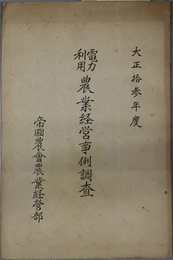 大正拾参年度
電力
利用
農業経営事例調査
帝國農會農業経営部